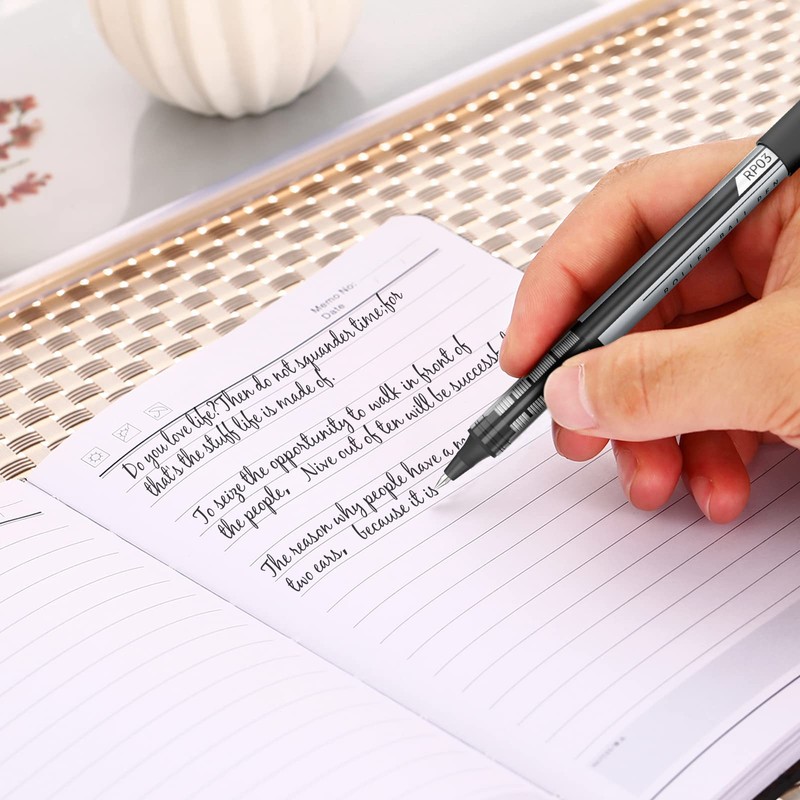 Memo No:
Date
Do you love life? Then do not squander time, for
that's the stuff life is made of.
To seize the opportunity to walk in front of
the people, Nive out of ten will be
The reason why people have a
two ears, because it is
RP03
ROLLER BALL PEN